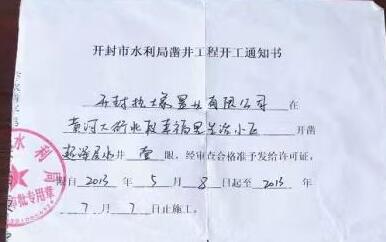 开封市水利局凿井工程开工通知书
开封 置业有限公司 在
黄河大街北段幸福里生活小区 开凿
超深层水井 壹 眼，经审查合格准予发给许可证，
限自 2013 年 5 月 8 日起至 2013 年
7 月 7 日止施工。
水利局
审批专用章